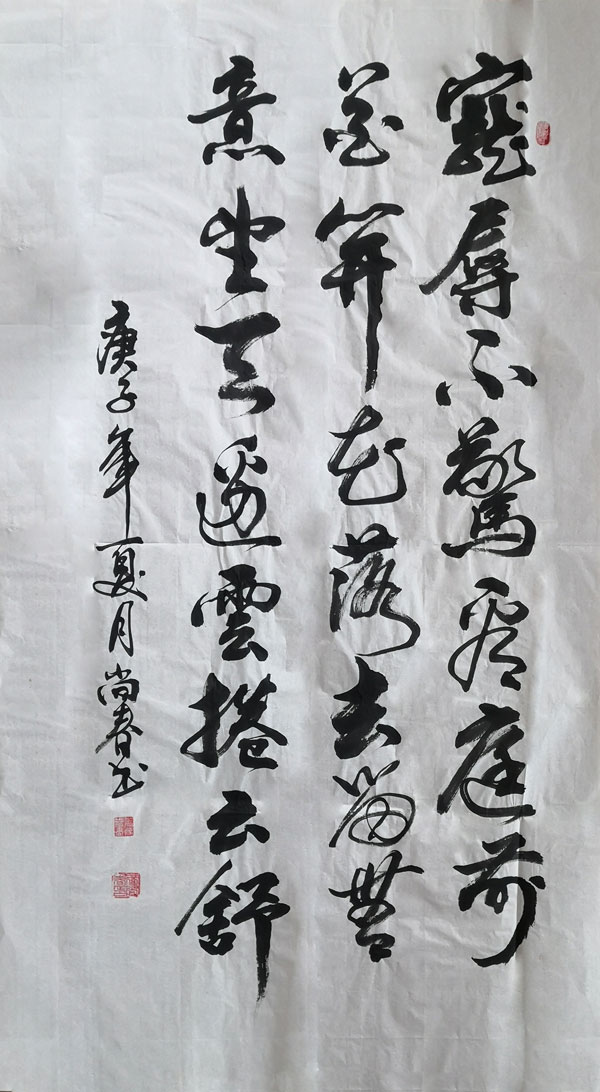 寵辱不驚看庭前
花開花落去留無
意望天邊雲捲云舒
庚子年夏月尚春书